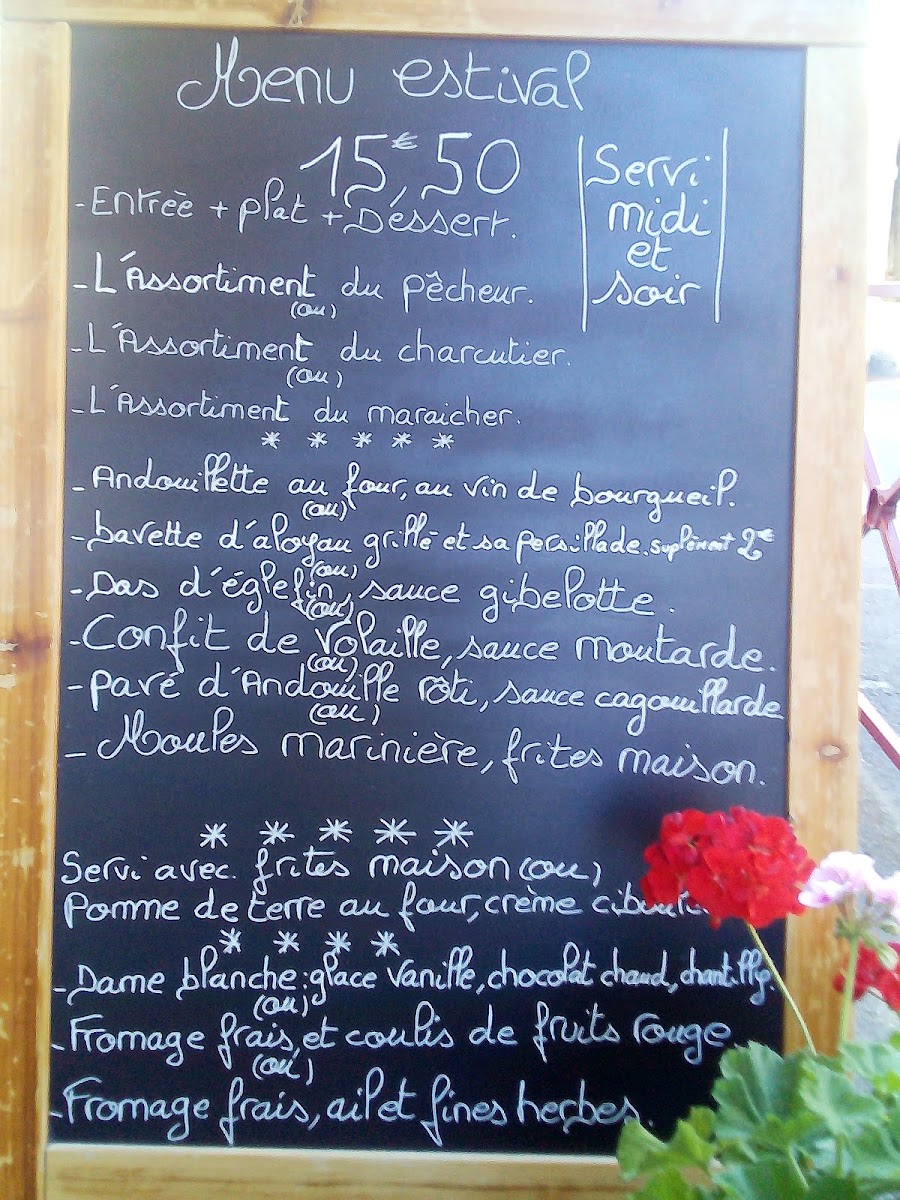 Menu estival
15,€50
Servi
midi
et
soir
-Entrèe + plat + Déssert.
-L'Assortiment du pêcheur.
(ou)
-L'Assortiment du charcutier.
(ou)
-L'Assortiment du maraicher.
* * * * *
-Andouillette au four, au vin de bourgueil.
(ou)
-bavette d'aloyau grillé et sa persillade. suplèment 2€
(ou)
-Dos d'églefin, sauce gibelotte.
(ou)
-Confit de volaille, sauce moutarde.
(ou)
-pavé d'Andouille rôti, sauce cagouillarde
(ou)
- Moules marinière, frites maison.
* * * * *
Servi avec frites maison (ou)
Pomme de terre au four, crème
* * * *
-Dame blanche: glace vanille, chocolat chaud, chantilly.
(ou)
-Fromage frais, et coulis de fruits rouge.
(ou)
-Fromage frais, ail et fines herbes.